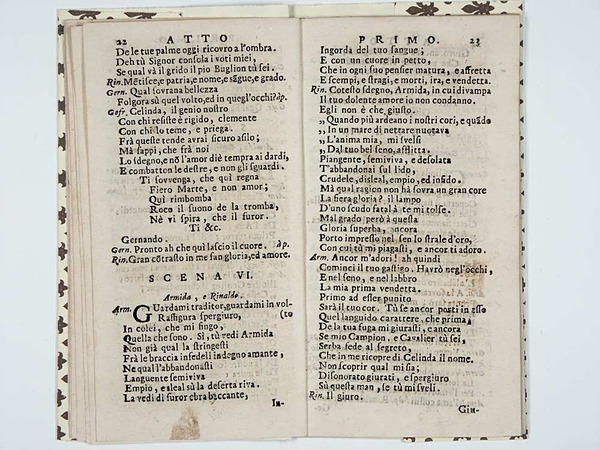 22 ATTO
De le tue palme oggi ricovro a l'ombra.
Deh tù Signor consola i voti miei,
Se qual và il grido il pio Buglion tù sei.
Rin. Mẽtisce, e patria, e nome, e sãgue, e grado.
Gern. Qual sovrana bellezza
Folgora sù quel volto, ed in quegl'occhi? àp.
Gofr. Celinda, il genio nostro
Con chi resiste è rigido, clemente
Con chi lo teme, e priega.
Frà queste tende avrai sicuro asilo;
Mà sappi, che frà noi
Lo sdegno, e nõ l'amor diè tempra ai dardi,
E combatton le destre, e non gli sguardi.
Ti sovvenga, che quì regna
Fiero Marte, e non amor;
Quì rimbomba
Roco il suono de la tromba,
Nè vi spira, che il furor.
Ti &c.
Gernando.
Gern. Pronto ah che quì lascio il cuore. àp.
Rin. Gran cõtrasto in me san gloria, ed amore.
SCENA VI.
Armida, e Rinaldo.
Arm. Guardami traditor, guardami in vol-
Raffigura spergiuro, (to
In colei, che mi fingo,
Quella che sono. Sì, tù vedi Armida
Non già qual la stringesti
Frà le braccia infedeli indegno amante,
Ne qual l'abbandonasti
Languente semiviva
Empio, e sleal sù la deserta riva.
La vedi di furor ebra baccante,
In-
PRIMO. 23
Ingorda del tuo sangue;
E con un cuore in petto,
Che in ogni suo pensier matura, e affretta
E scempi, e stragi, e morti, ira, e vendetta.
Rin. Cotesto sdegno, Armida, in cui divampa
Il tuo dolente amore io non condanno.
Egli non è che giusto.
„ Quando più ardeano i nostri cori, e quãdo
„ In un mare di nettare nuotava
„ L'anima mia, mi svelsi
„ Dal tuo bel seno, afflitta.
Piangente, semiviva, e desolata
T'abbandonai sul lido,
Crudele, disleal, empio, ed infido.
Mà qual ragion non hà sovra un gran core
La fiera gloria? il lampo
D'uno scudo fatal à te mi tolse.
Mal grado però à questa
Gloria superba, ancora
Porto impresso nel sen lo strale d'oro,
Con cui tù mi piagasti, e ancor ti adoro.
Arm. Ancor m'adori! ah quindi
Cominci il tuo gastigo. Havrò negl'occhi,
En tel seno, e nel labbro
La mia prima vendetta.
Primo ad esser punito
Sarà il tuo cor. Tù se ancor porti in esso
Quel languido carattere, che prima,
De la tua fuga mi giurasti, e ancora
Se mio Campion, e Cavalier tù sei,
Serba fede al segreto,
Che in me ricopre di Celinda il nome.
Non scoprir qual mi sia;
Disonorato giurati, e spergiuro
Sù questa man, se tù mi sveli.
Rin. Il giuro.
Giu-